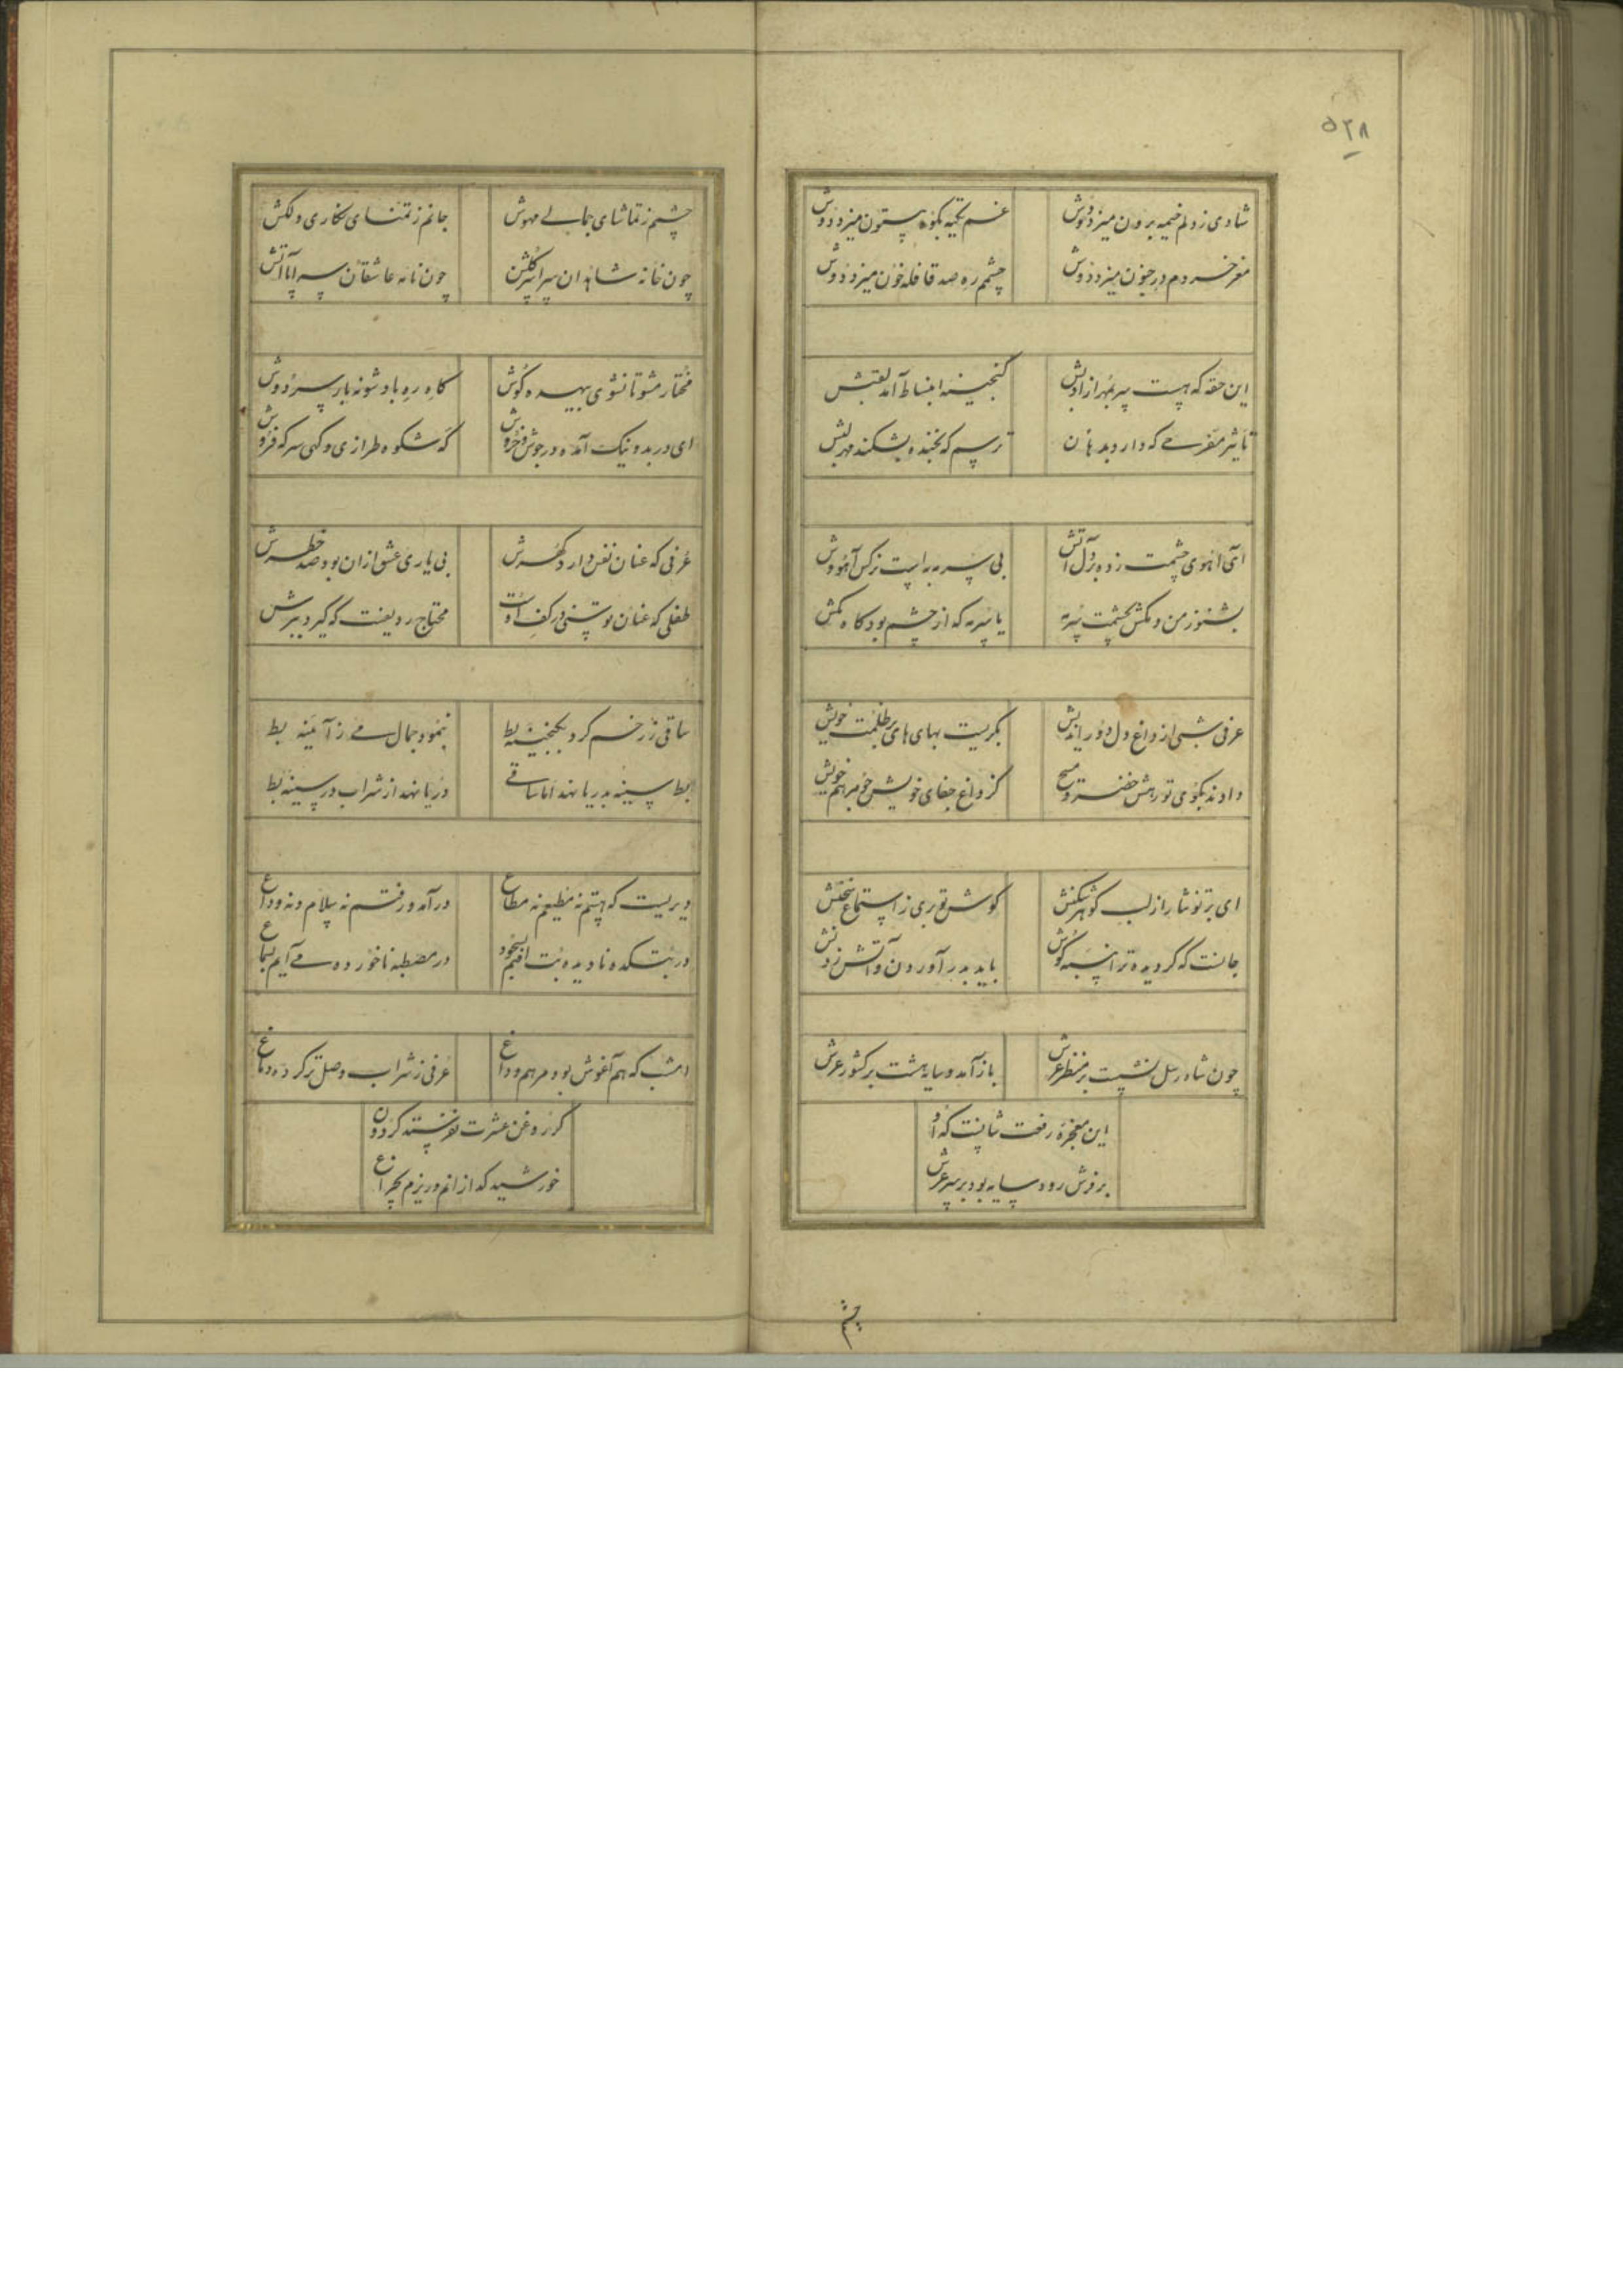 ۵۲۸
شادی ز دلم خیمه برون میزد دوش
غم تکیه بکوه بیستون میزد دوش
مغز خردم در جنون میزد دوش
چشمم ره صد قافله خون میزد دوش
این حقه که هست سر بمهر از ادبش
گنجینهٔ انبساط آمد لقبش
تاثیر مفرحی که دارد بدهان
ترسم که بخنده بشکند مهر لبش
ای آهوی چشمت زده بر دل آتش
بی سرمه به است نرگس آهو وش
بشنو ز من و مکش بچشمت سرمه
یا سرمه که از چشم بود کاه مکش
عرفی شبی از داغ دل دور اندیش
بگریست بهای های بر ظلمت خویش
دادند بکوی تو رهش خضر و مسیح
کز داغ جفای خویش جو مرهم خویش
ای بر تو نثار از لب گوهر شکنش
گوش تو بری ز استماع سخنش
جانست که گردیده ترا پنبهٔ گوش
باید بدر آوردن و آتش زدنش
چون شاه رسل نشست بر منظر عرش
باز آمد و سایه هشت بر کشور عرش
این معجزهٔ رفعت شانست که او
بر فرش رود سایه بود بر سر عرش
چشم
چشمم ز تماشای جمالی مهوش
جانم ز تمنای نگاری دلکش
چون خانه شاهدان سراسر گلشن
چون نامه عاشقان سراپا آتش
مختار مشو تا نشوی بیهده کوش
کاه ره باد شو نه بار سر دوش
ای در بد و نیک آمده در جوش و خروش
گه شکوه طرازی و گهی سرکه فروش
عرفی که عنان نفس دارد گهرش
بی یاری عشق ازان بود صد خطرش
طفلی که عنان توسنی در کف اوست
محتاج ردیفست که گیرد ببرش
ساقی ز رخم کرد بگنجینه بط
بنمود جمال می ز آیینه بط
بط سینه بدریا نهد اما ساقی
دریا نهد از شراب در سینهٔ بط
دیریست که هستم نه مطیع و نه مطاع
در آمد و رفتم نه سلام و نه وداع
در بتکده نادیده بت افتم بسجود
در مصطبه ناخورده می آیم بسماع
امشب که هم آغوش بود مرهم و داغ
عرفی ز شراب وصل تر کرده دماغ
گر روغن عشرت نفرستد گردون
خورشید گدازانم و ریزم بچراغ